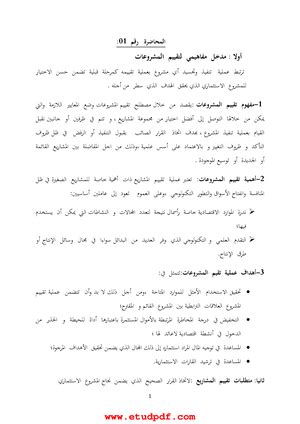 المحاضرة رقم 01:
أولا : مدخل مفاهيمي لتقييم المشروعات
ترتبط عملية تنفيذ وتجسيد أي مشروع بعملية تقييمه كمرحلة قبلية تضمن حسن الاختيار
للمشروع الاستثماري الذي يحقق الهدف الذي سطر من أجله .
1-مفهوم تقييم المشروعات: يقصد من خلال مصطلح تقييم المشروعات وضع المعايير اللازمة والتي
يمكن من خلالها التوصل إلى أفضل اختيار من مجموعة المشاريع ، و تتم في طرفين أو جانبين تقبل
القيام بعملية تنفيذ المشروع ، بهدف اتخاذ القرار الصائب بقبول التنفيذ أو الرفض في ظل ظروف
التأكد و ظروف التغير و بالاعتماد على أسس علمية وذلك من اجل المفاضلة بين المشاريع القائمة
أو الجديدة أو توسيع الموجودة .
2-أهمية تقييم المشروعات: تعتبر عملية تقييم المشاريع ذات أهمية خاصة للمشاريع الصغيرة في ظل
المنافسة وانفتاح الأسواق والتطور التكنولوجي وعلى العموم تعود إلى عاملين أساسيين:
➢ ندرة الموارد الاقتصادية خاصة رأسمال نتيجة لتعدد المجالات و النشاطات التي يمكن أن يستخدم
فيها؛
➢ التقدم العلمي و التكنولوجي الذي وفر العديد من البدائل سواء في مجال وسائل الإنتاج أو
طرق الإنتاج.
3-أهداف عملية تقييم المشروعات: تتمثل في:
• تحقيق الاستخدام الأمثل للموارد المتاحة ومن أجل ذلك لا بد وأن تتضمن عملية تقييم
المشروع العلاقات الترابطية بين المشروع القائم و المقترح؛
• التخفيض في درجة المخاطرة المرتبطة بالأموال المستثمرة باعتبارها أداة للحيطة و الحذر من
الدخول في أنشطة اقتصادية لا عائد لها ؛
• المساعدة في توجيه المال المراد استثماره إلى ذلك المجال الذي يضمن تحقيق الأهداف المرجوة؛
• المساعدة في ترشيد القرارات الاستثمارية.
ثانيا: متطلبات تقييم المشاريع :لاتخاذ القرار الصحيح الذي يضمن نجاح المشروع الاستثماري
1
www.etudpdf.com